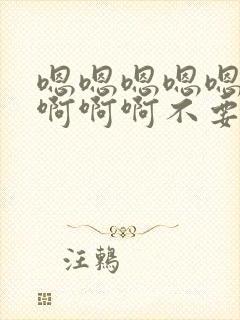 嗯嗯嗯嗯嗯
啊啊啊不要
汪鶇